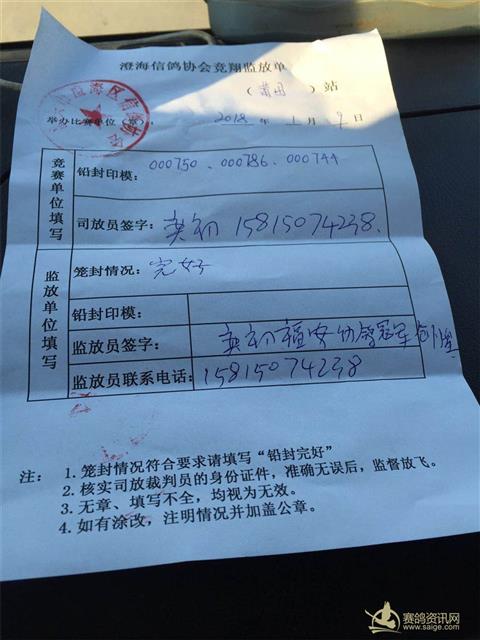 澄海信鸽协会竞翔监放单
（莆田）站
举办比赛单位（章）： 2018 年 1 月 9 日
竞赛单位填写
铅封印模： 000750 . 000786 . 000744
司放员签字： 奕初 15815074238.
监放单位填写
笼封情况： 完好
铅封印模：
监放员签字： 奕初福安幼鸽冠军
监放员联系电话： 15815074238
注： 1. 笼封情况符合要求请填写“铅封完好”
2. 核实司放裁判员的身份证件，准确无误后，监督放飞。
3. 无章、填写不全，均视为无效。
4. 如有涂改，注明情况并加盖公章。
赛鸽资讯网
www.saige.com